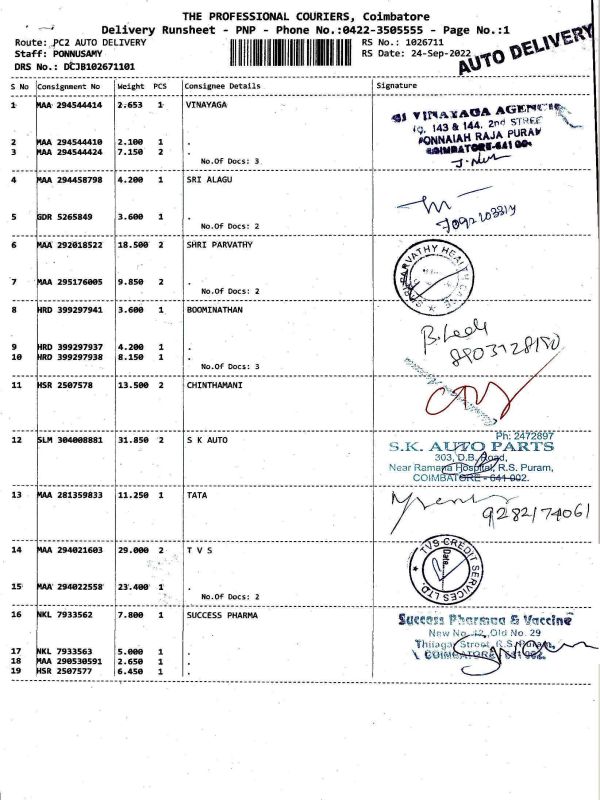 THE PROFESSIONAL COURIERS, Coimbatore
Delivery Runsheet - PNP - Phone No.:0422-3505555 - Page No.:1
Route: PC2 AUTO DELIVERY RS No.: 1026711
Staff: PONNUSAMY RS Date: 24-Sep-2022
DRS No.: DCJB102671101
AUTO DELIVERY
S No Consignment No Weight PCS Consignee Details Signature
1 MAA 294544414 2.653 1 VINAYAGA
VINAYAGA AGENCIE
143 & 144, 2nd STREE
PONNAIAH RAJA PURAM
COIMBATORE-641 00
2 MAA 294544410 2.100 1 .
3 MAA 294544424 7.150 2 .
No.Of Docs: 3
4 MAA 294458798 4.200 1 SRI ALAGU
5 GDR 5265849 3.600 1 .
No.Of Docs: 2
6 MAA 292018522 18.500 2 SHRI PARVATHY
PARVATHY HEALTH CARE
7 MAA 295176005 9.850 2 .
No.Of Docs: 2
8 HRD 399297941 3.600 1 BOOMINATHAN
9 HRD 399297937 4.200 1 .
10 HRD 399297938 8.150 1 .
No.Of Docs: 3
8903128150
11 HSR 2507578 13.500 2 CHINTHAMANI
12 SLM 304008881 31.850 2 S K AUTO
Ph: 2472897
S.K. AUTO PARTS
303, D.B. Road,
Near Ramana Hospital, R.S. Puram,
COIMBATORE - 641 002.
13 MAA 281359833 11.250 1 TATA
9282174061
14 MAA 294021603 29.000 2 T V S
TVS CREDIT SERVICES LTD.
Date
15 MAA 294022558 23.400 1 .
No.Of Docs: 2
16 NKL 7933562 7.800 1 SUCCESS PHARMA
Success Pharmaa & Vaccine
New No.12, Old No. 29
Thiiaga Street, R.S. Puram,
COIMBATORE - 641 002.
17 NKL 7933563 5.000 1 .
18 MAA 290530591 2.650 1 .
19 HSR 2507577 6.450 1 .